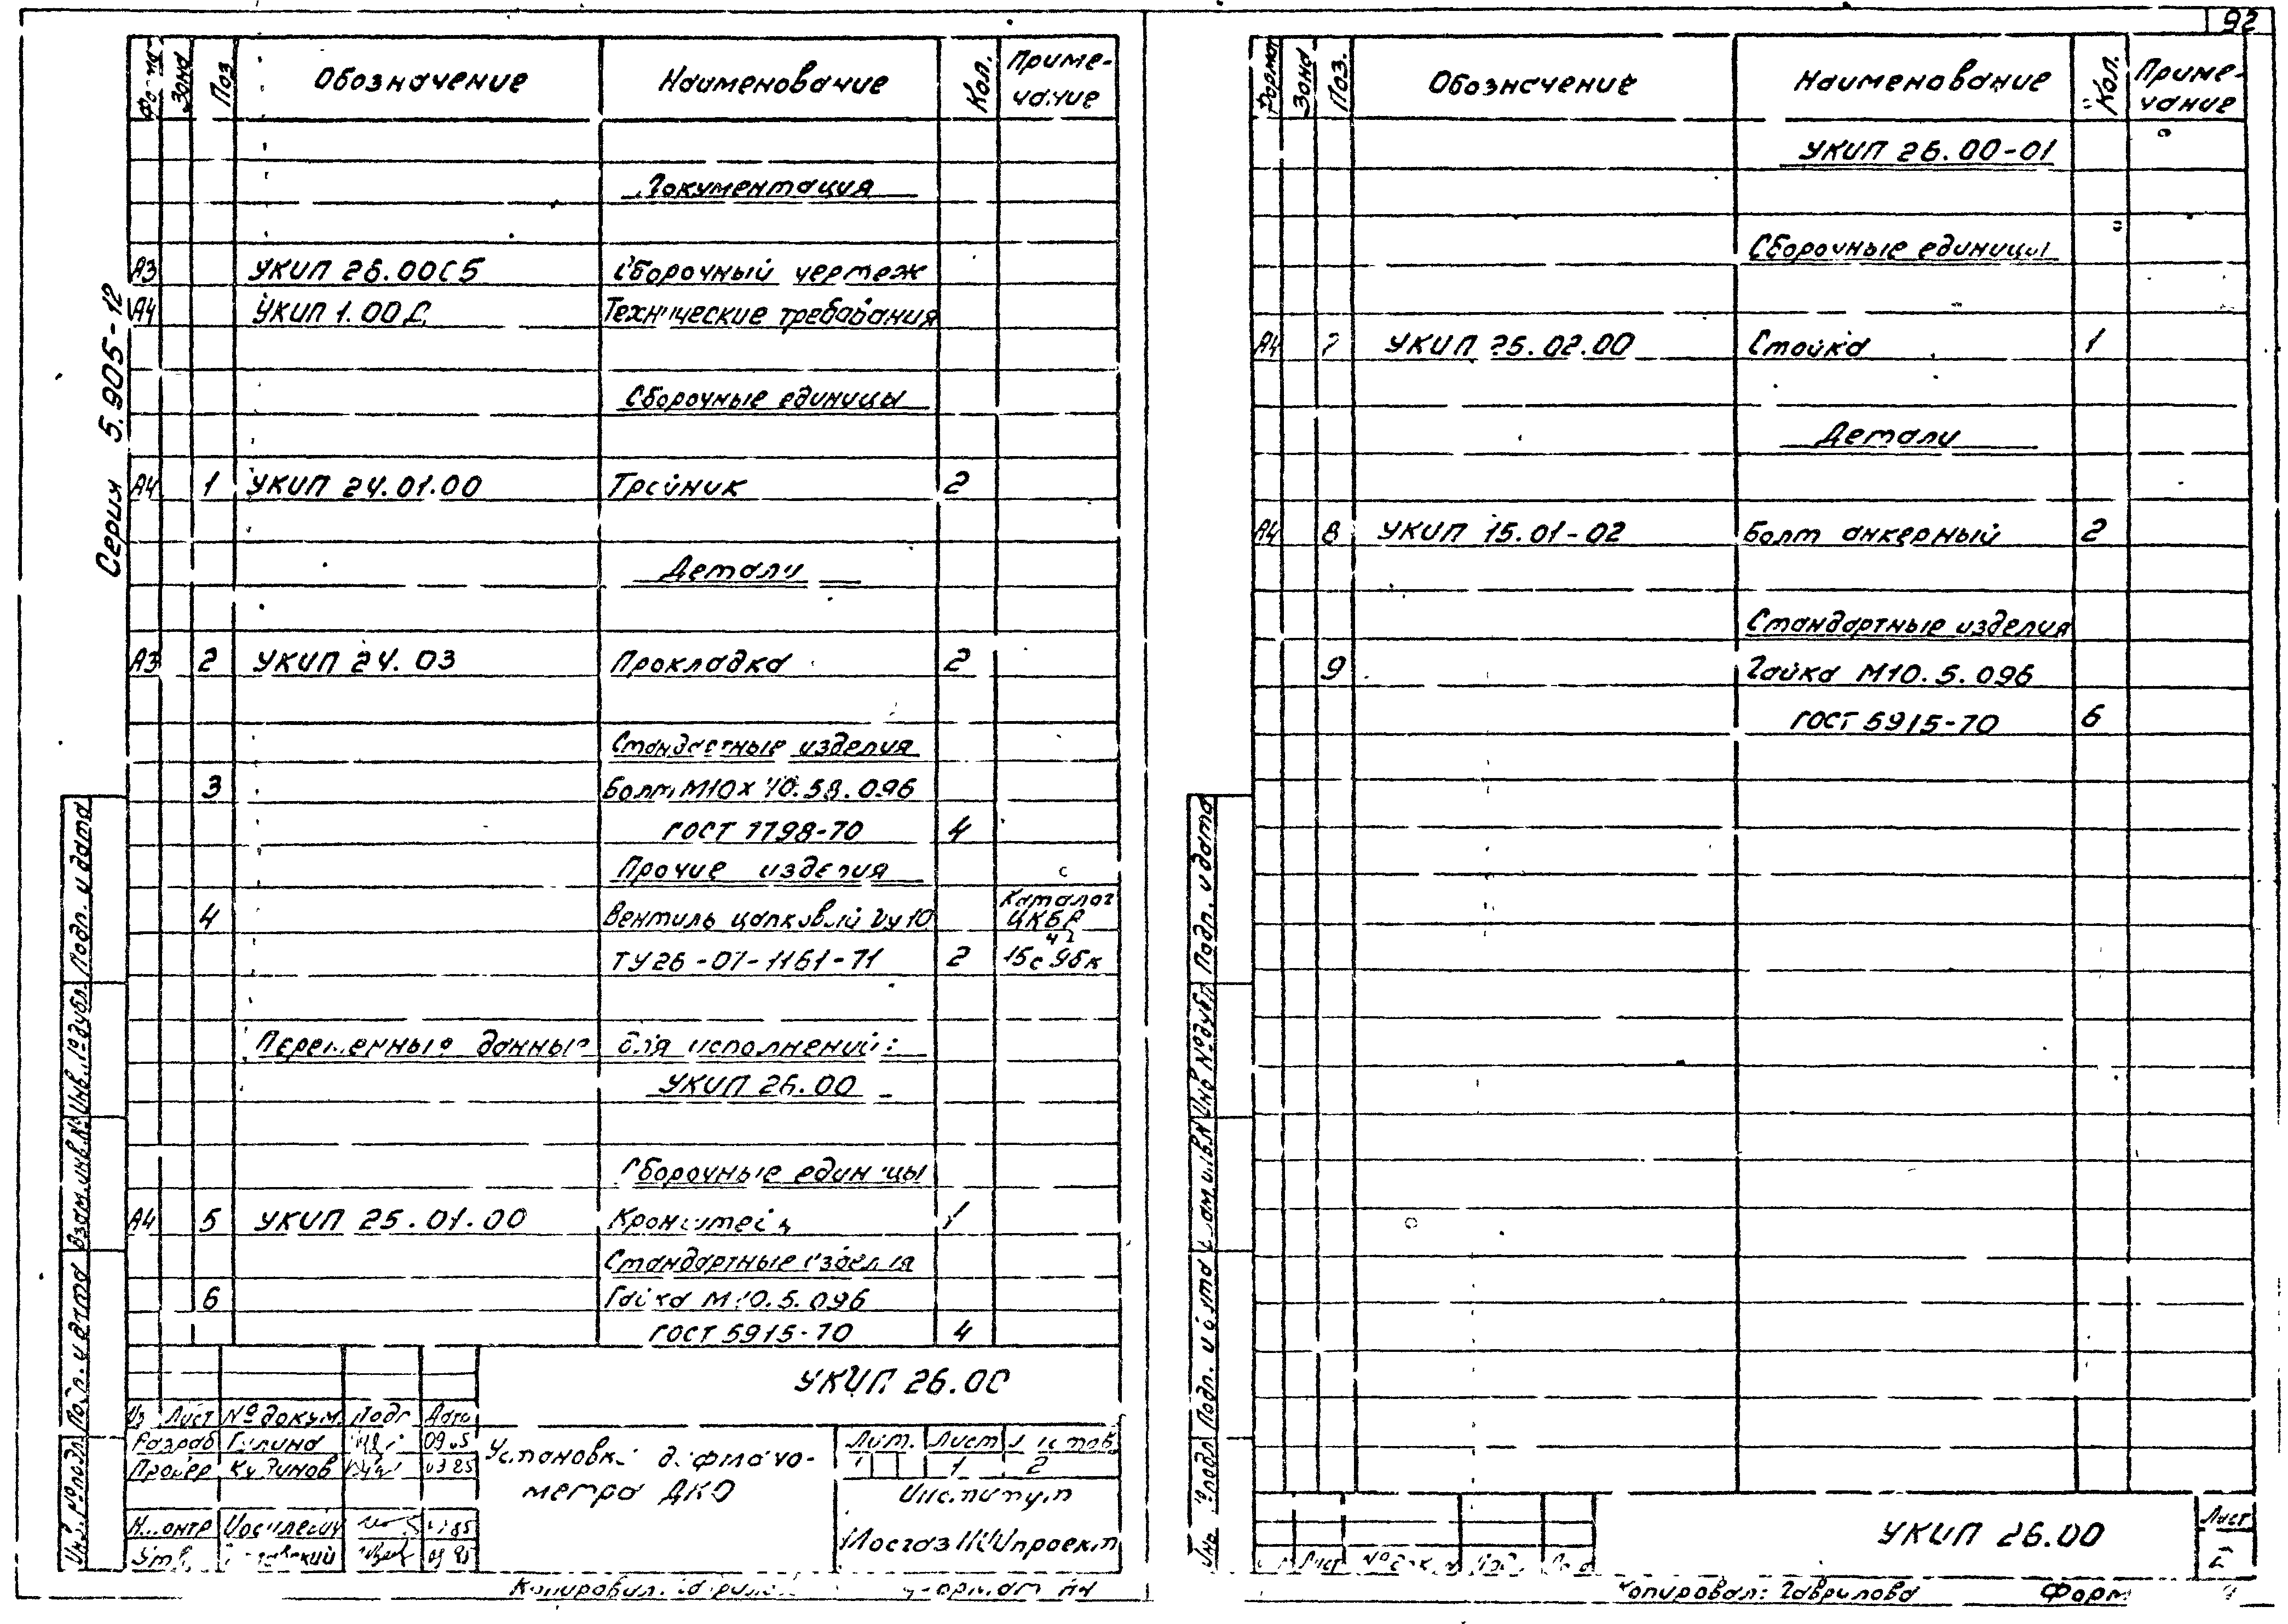 92
Серия 5.905-12
Зона Поз Обозначение Наименование Кол. Приме-
чание
Документация
А3 УКИП 26.00СБ Сборочный чертеж
А4 УКИП 1.00 Технические требования
Сборочные единицы
А4 1 УКИП 24.01.00 Тройник 2
Детали
А3 2 УКИП 24.03 Прокладка 2
Стандартные изделия
3 Болт М10х40.58.096
ГОСТ 7798-70 4
Прочие изделия
4 Вентиль цапковый Ду10 Каталог
ЦКБА
ТУ26-07-1161-71 2 15с9бк
Переменные данные для исполнений:
УКИП 26.00
Сборочные единицы
А4 5 УКИП 25.01.00 Кронштейн 1
Стандартные изделия
6 Гайка М10.5.096
ГОСТ 5915-70 4
УКИП 26.00
Из Лист № докум. Подп Дата
Разраб 09.85
Провер Кудинов 03 85
Н.контр
Утв.
Установка дифмано-
метра ДКО
Лит. Лист Листов
1 2
Институт
МосгазНИИпроект
Копировал: Гаврилова Формат А4
Инв. № подл. Подп. и дата Взам. инв. № Инв. № дубл. Подп. и дата
Формат Зона Поз. Обозначение Наименование Кол. Приме-
чание
УКИП 26.00-01
Сборочные единицы
А4 7 УКИП 25.02.00 Стойка 1
Детали
А4 8 УКИП 15.01-02 Болт анкерный 2
Стандартные изделия
9 Гайка М10.5.096
ГОСТ 5915-70 6
УКИП 26.00
Лист
2
Лист № докум.
Копировал: Гаврилова Форм
Инв. № подл Подп. и дата Взам. инв. № Инв № дубл Подп. и дата